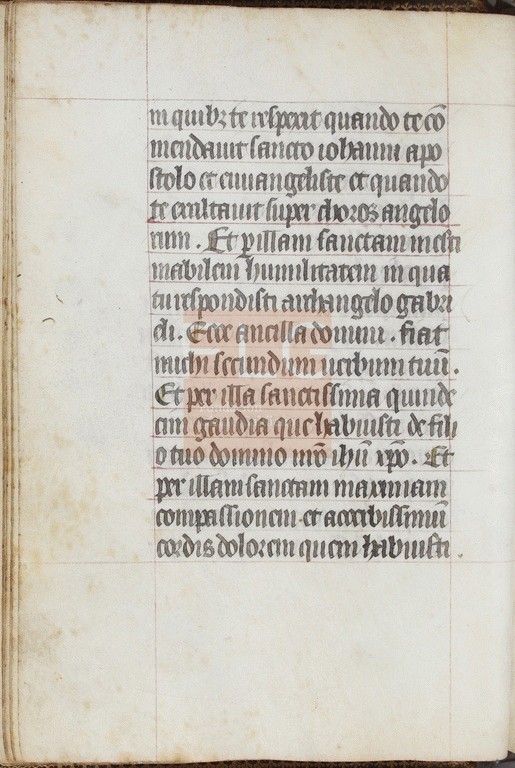 in quibꝫ te respexit quando te cō
mendauit sancto iohanni apo
stolo et euuangeliste et quando
te exaltauit super choros angelo
rum . Et ꝑ illam sanctam inesti
mabilem humilitatem in qua
tu respondisti archangelo gabri
eli . Ecce ancilla domini . fiat
michi secundum uerbum tuū .
Et per illa sanctissima quinde
cim gaudia que habuisti de fili
o tuo domino nr̄o ihū xp̄o . Et
per illam sanctam maximam
compassionem et acerbissimū
cordis dolorem quem habuisti .